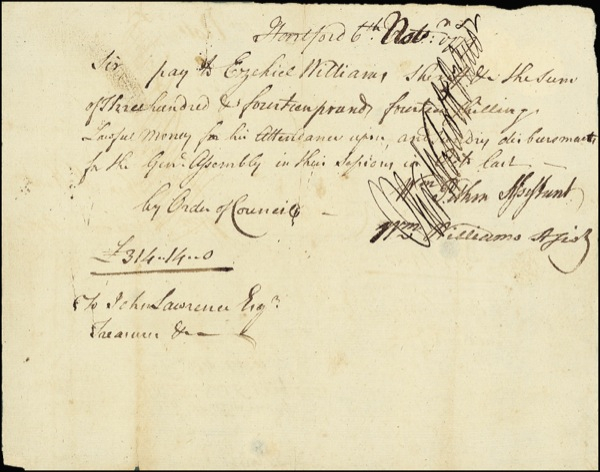 Hartford 6th Nobr
Sir pay to Ezekiel Williams, Sherif &c the sum
of Three hundred & fourteen pounds fourteen shillings
Lawful Money for his Attendance upon, and disbursments
for the Genl Assembly in their Sessions in last —
by Order of Council —
Wm Pitkin Assistant
Wm Williams Assist
£314-14-0
To John Lawrence Esqr
Treasurer &c —